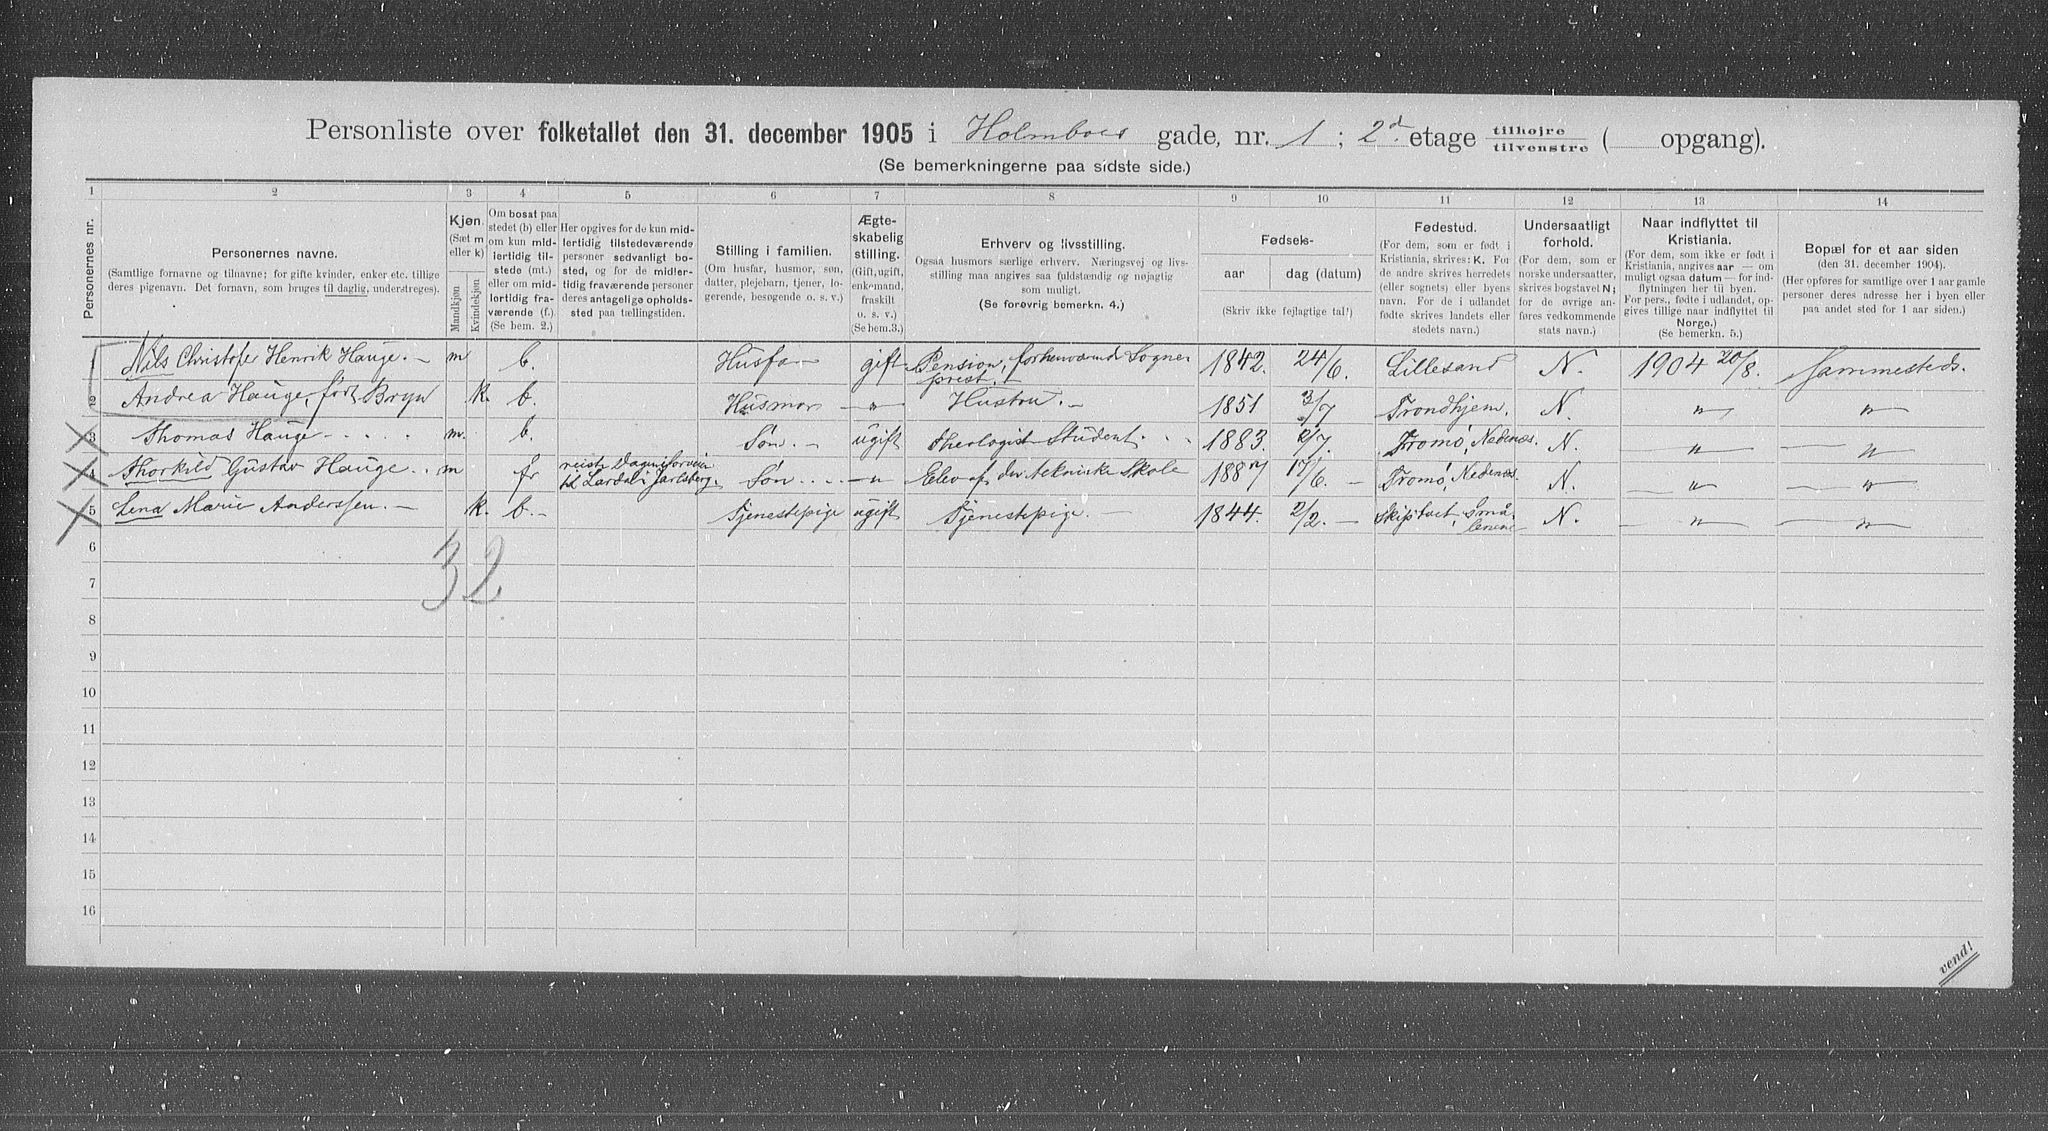 Personliste over folketallet den 31. december 1905 i Holmboes gade, nr. 1 ; 2d etage tilhøjre tilvenstre ( opgang).
(Se bemerkningerne paa sidste side.)
1 2 3 4 5 6 7 8 9 10 11 12 13 14
Personernes nr.
Personernes navne.
(Samtlige fornavne og tilnavne; for gifte kvinder, enker etc. tillige
deres pigenavn. Det fornavn, som bruges til daglig, understreges).
Kjøn.
(Sæt m
eller k)
Mandkjøn
Kvindekjøn
Om bosat paa
stedet (b) eller
om kun mid-
lertidig til-
stede (mt.)
eller om mid-
lertidig fra-
værende (f.)
(Se bem. 2.)
Her opgives for de kun mid-
lertidig tilstedeværende
personer sedvanligt bo-
sted, og for de midler-
tidig fraværende personer
deres antagelige opholds-
sted paa tællingstiden.
Stilling i familien.
(Om husfar, husmor, søn,
datter, plejebarn, tjener, lo-
gerende, besøgende o. s. v.)
Ægte-
skabelig
stilling.
(Gift, ugift,
enkemand,
fraskilt
o. s. v.)
(Se bem.3.)
Erhverv og livsstilling.
Ogsaa husmors særlige erhverv. Næringsvej og livs-
stilling maa angives saa fuldstændig og nøjagtig
som muligt.
(Se forøvrig bemerkn. 4.)
Fødsels-
aar dag (datum)
(Skriv ikke fejlagtige tal!)
Fødested.
(For dem, som er født i
Kristiania, skrives: K. For
de andre skrives herredets
(eller sognets) eller byens
navn. For de i udlandet
fødte skrives landets eller
stedets navn.)
Undersaatligt
forhold.
(For dem, som er
norske undersaatter,
skrives bogstavet N;
for de øvrige an-
føres vedkommende
stats navn.)
Naar indflyttet til
Kristiania.
(For dem, som ikke er født i
Kristiania, angives aar — om
muligt ogsaa datum — for ind-
flytningen her til byen.
For pers., fødte i udlandet, op-
gives tillige naar indflyttet til
Norge.)
(Se bemerkn. 5.)
Bopæl for et aar siden
(den 31. december 1904).
(Her opføres for samtlige over 1 aar gamle
personer deres adresse her i byen eller
paa andet sted for 1 aar siden.)
Nils Christofer Henrik Hauge. — m b. Husfar gift Pension, forhenværende Sogne-
prest. 1842. 24/6. Lillesand N. 1904 20/8. Sammesteds.
2 Andrea Hauge, født Bryn k. b. Husmor — " — Hustru. — 1851 3/7 Trondhjem. N. — " — — " —
3 Thomas Hauge . . . . . m. b. Søn. — ugift theologisk Student . . . 1883. 2/7. Tromø, Nedenæs. N. — " — — " —
4 Thorkild Gustav Hauge . . m fr reiste Dagen forveien
til Lardal i Jarlsberg. Søn . . . — " Elev af den tekniske Skole 1887 17/6. — Tromø, Nedenæs. N. — " — — " —
5 Lena Marie Anderssen. — k. b. — Tjenestepige ugift Tjenestepige. — 1844. 2/2. — Skiptvet, Små-
lenene N. — " — — " —
32
6
7
8
9
10
11
12
13
14
15
16
vend!